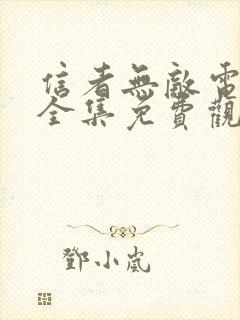 信者無敵電
全集免費觀
鄧小嵐